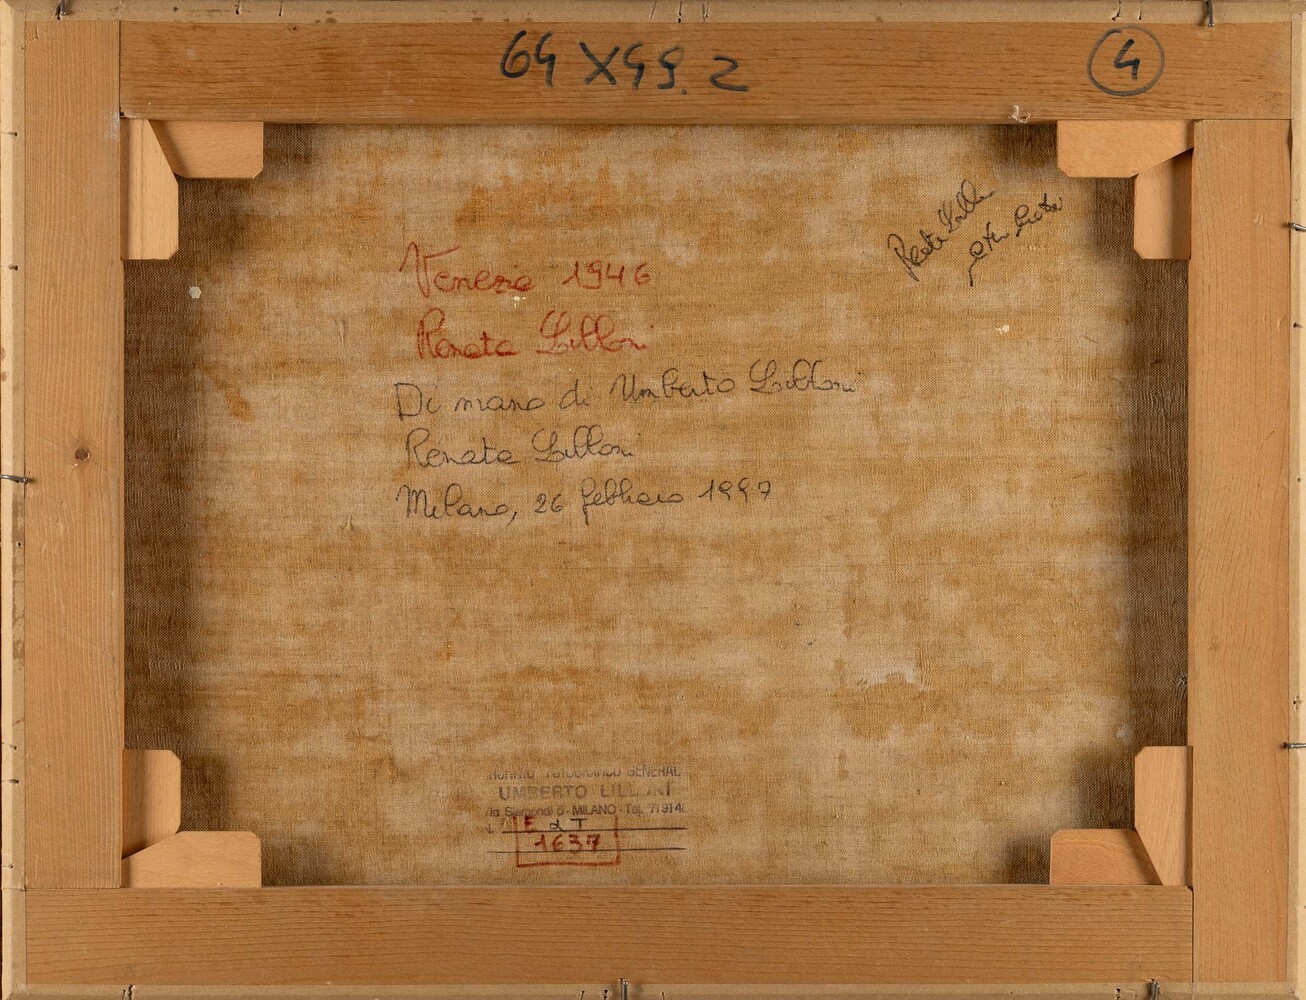 64 X 49.2
4
Venezia 1946
Renata Lilloni
Di mano di Umberto Lilloni
Renata Lilloni
Milano, 26 febbraio 1997
FOTOGRAFICO GENERAL
UMBERTO LILLONI
MILANO - Tel. 7191
1637